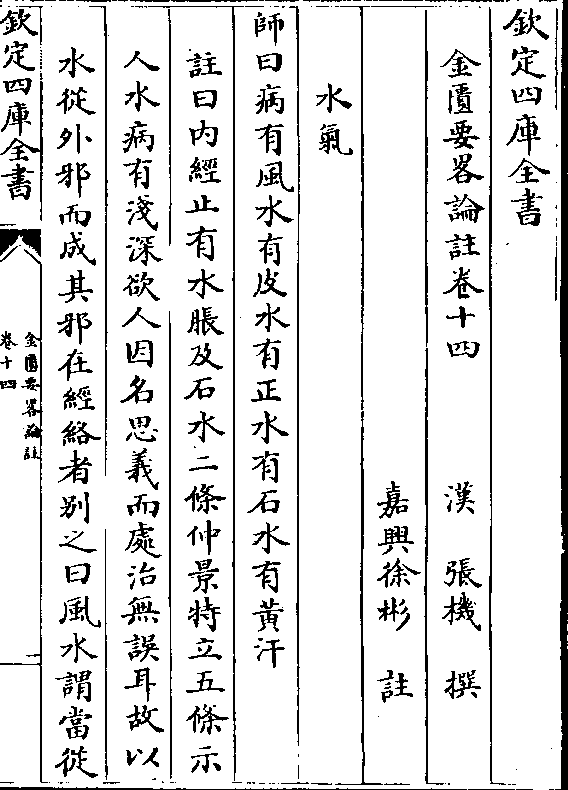 欽定四庫全書
金匱要畧論註卷十四
漢　張機　撰
嘉興徐彬　註
水氣
師曰病有風水有皮水有正水有石水有黃汗
註曰内經止有水脹及石水二條仲景特立五條示
人水病有淺深欲人因名思義而處治無誤耳故以
水從外邪而成其邪在經絡者别之曰風水謂當從
欽定四庫全書
金匱要畧論註
卷十四
一